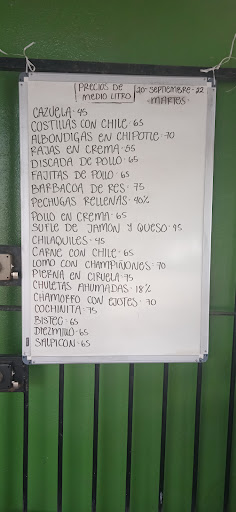 PRECIOS DE
MEDIO LITRO
20-SEPTIEMBRE-22
MARTES
CAZUELA-45
COSTILLAS CON CHILE-65
ALBONDIGAS EN CHIPOTLE-70
RAJAS EN CREMA-55
DISCADA DE POLLO-65
FAJITAS DE POLLO-65
BARBACOA DE RES-75
PECHUGAS RELLENAS-40%
POLLO EN CREMA-65
SUFLE DE JAMON Y QUESO-45
CHILAQUILES-45
CARNE CON CHILE-65
LOMO CON CHAMPIÑONES-70
PIERNA EN CIRUELA-75
CHULETAS AHUMADAS-18%
CHAMORRO CON EJOTES-70
COCHINITA-75
BISTEC-65
DIEZMILLO-65
SALPICON-65